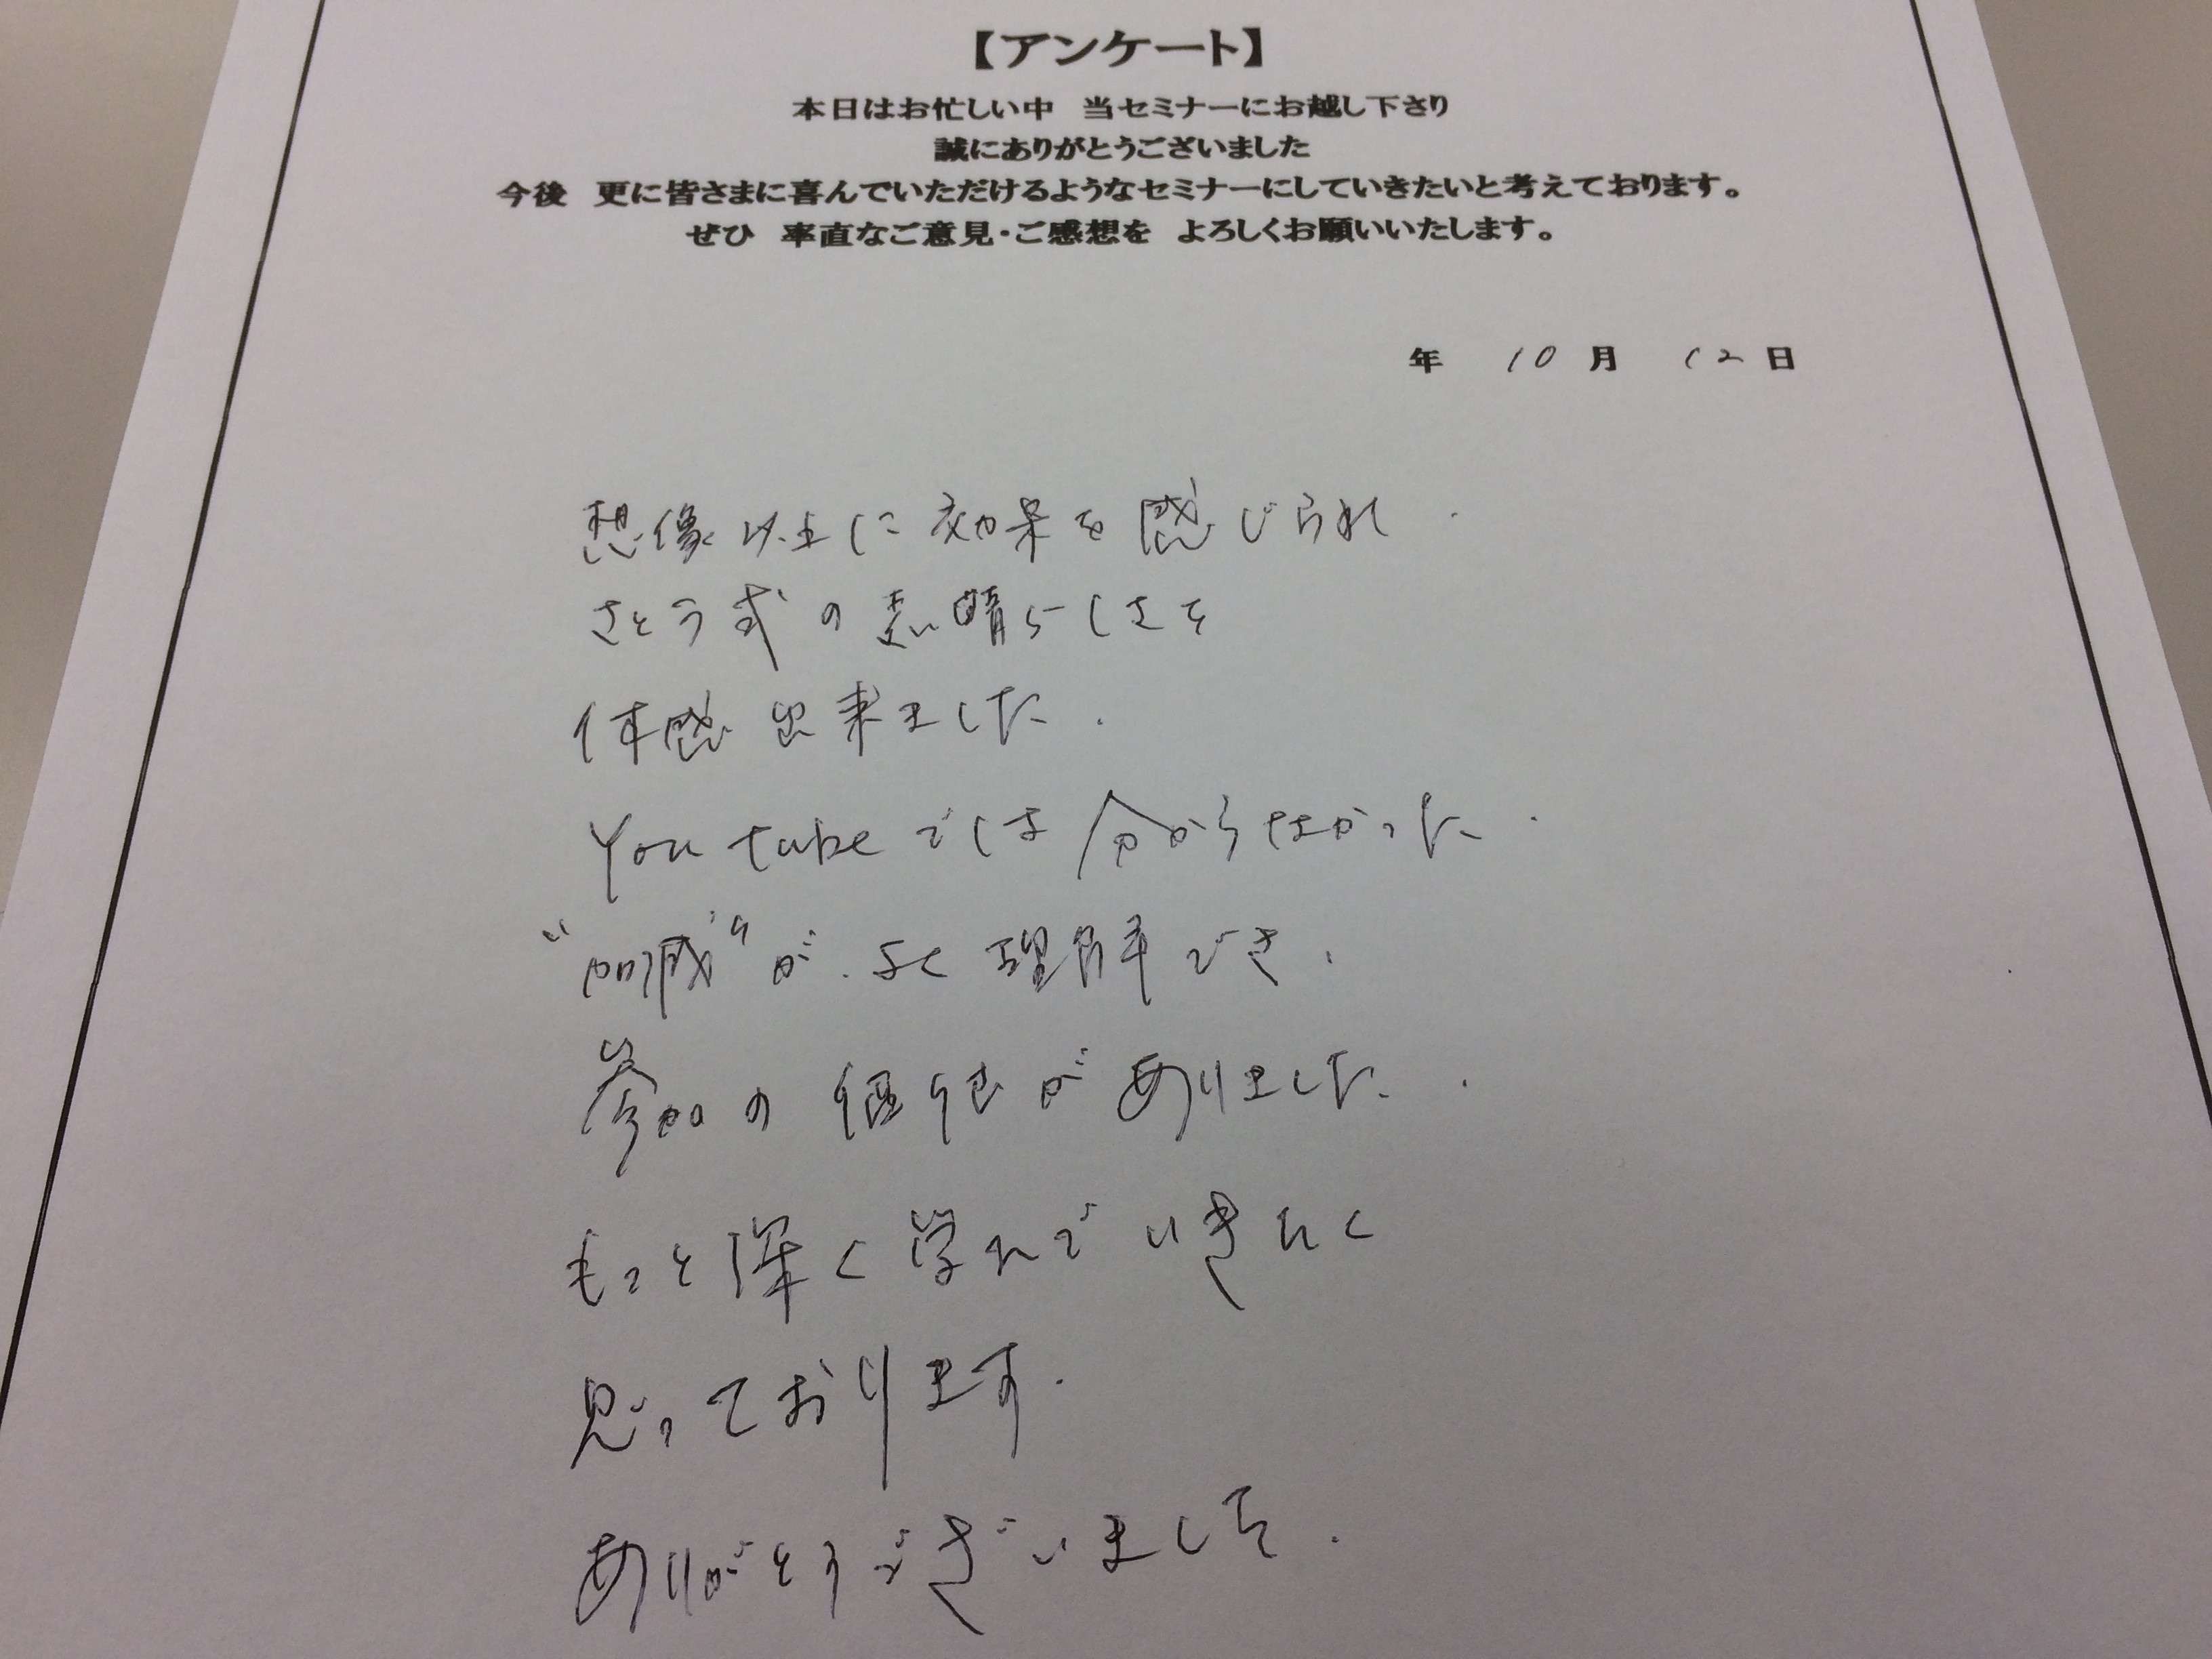 【アンケート】
本日はお忙しい中　当セミナーにお越し下さり
誠にありがとうございました
今後　更に皆さまに喜んでいただけるようなセミナーにしていきたいと考えております。
ぜひ　率直なご意見・ご感想を　よろしくお願いいたします。
年　10月　12日
想像以上に効果を感じられ
さとう式の素晴らしさを
体感出来ました.
You tubeでは分からなかった.
"加減"が.よく理解でき.
参加の価値がありました.
もっと深く学んでいきたく
思っております.
ありがとうございました.